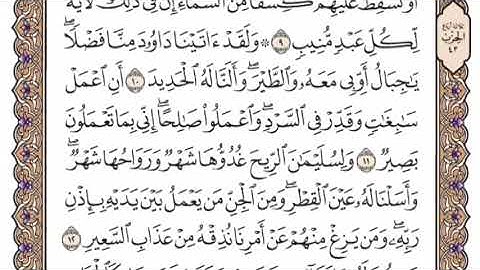 أَوْ نُسْقِطْ عَلَيْهِمْ كِسَفًا مِّنَ ٱلسَّمَآءِ إِنَّ فِى ذَٰلِكَ لَءَايَةً
لِّكُلِّ عَبْدٍ مُّنِيبٍ ٩ ۞ وَلَقَدْ ءَاتَيْنَا دَاوُۥدَ مِنَّا فَضْلًا ۖ
يَٰجِبَالُ أَوِّبِى مَعَهُۥ وَٱلطَّيْرَ ۖ وَأَلَنَّا لَهُ ٱلْحَدِيدَ ١٠ أَنِ ٱعْمَلْ
سَٰبِغَٰتٍ وَقَدِّرْ فِى ٱلسَّرْدِ ۖ وَٱعْمَلُوا۟ صَٰلِحًا ۖ إِنِّى بِمَا تَعْمَلُونَ
بَصِيرٌ ١١ وَلِسُلَيْمَٰنَ ٱلرِّيحَ غُدُوُّهَا شَهْرٌ وَرَوَاحُهَا شَهْرٌ ۖ
وَأَسَلْنَا لَهُۥ عَيْنَ ٱلْقِطْرِ ۖ وَمِنَ ٱلْجِنِّ مَن يَعْمَلُ بَيْنَ يَدَيْهِ بِإِذْنِ
رَبِّهِۦ ۖ وَمَن يَزِغْ مِنْهُمْ عَنْ أَمْرِنَا نُذِقْهُ مِنْ عَذَابِ ٱلسَّعِيرِ ١٢
الحزب
٤٣